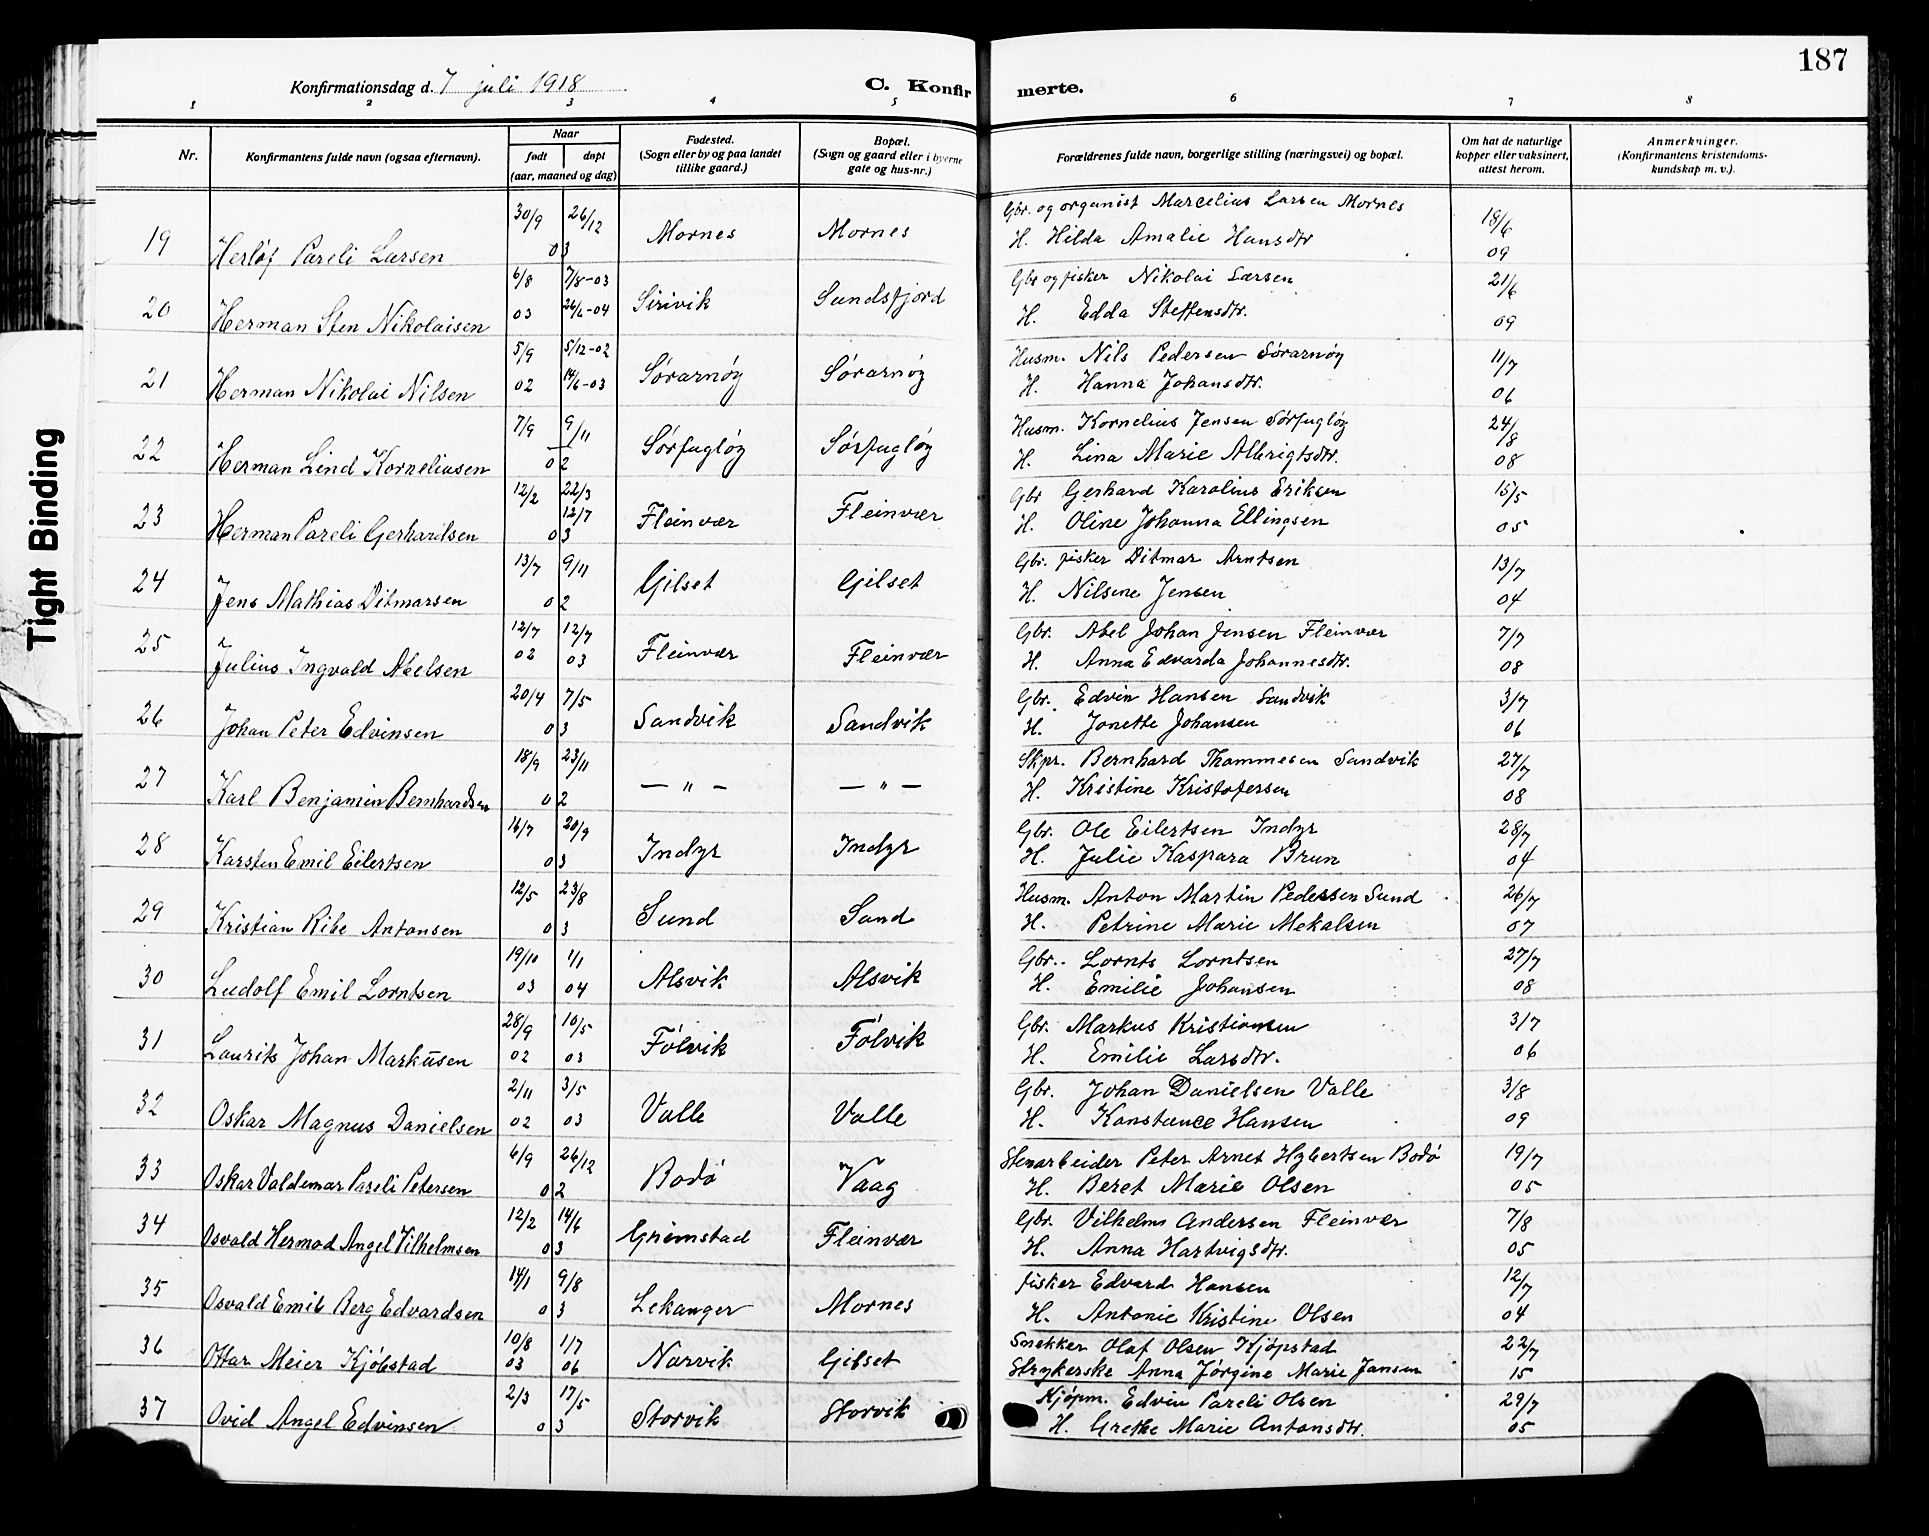 187
Konfirmationsdag d. 7 juli 1918
C. Konfirmerte.
1 2 3 4 5 6 7 8
Nr.
Konfirmantens fulde navn (ogsaa efternavn).
Naar
født døpt
(aar, maaned og dag)
Fødested.
(Sogn eller by og paa landet
tillike gaard.)
Bopæl.
(Sogn og gaard eller i byerne
gate og hus-nr.)
Forældrenes fulde navn, borgerlige stilling (næringsvei) og bopæl.
Om hat de naturlige
kopper eller vaksinert,
attest herom.
Anmerkninger.
(Konfirmantens kristendoms-
kundskap m. v.)
Tight Binding
30/9 26/12 Gbr. og organist Marcelius Larsen Mornes 18/6
19 Herløf Pareli Larsen 03 Mornes Mornes H. Hilda Amalie Hansdtr 09
6/8 7/8-03 Gbr og fisker Nikolai Larsen 21/6
20 Herman Sten Nikolaisen 03 26/6-04 Sirivik Sundsfjord H. Edda Steffensdtr. 09
5/9 5/12-02 Husm. Nils Pedersen Sørarnøy 11/7
21 Herman Nikolai Nilsen 02 14/6-03 Sørarnøy Sørarnøy H. Hanna Johansdtr. 06
7/9 9/11 Husm. Kornelius Jensen Sørfugløy 24/8
22 Herman Lind Korneliusen 02 Sørfugløy Sørfugløy H. Lina Marie Albrigtsdtr. 08
12/2 22/3 12/7 Gbr Gerhard Karolius Eriksen 15/5
23 Herman Pareli Gerhardsen 03 Fleinvær Fleinvær H. Oline Johanna Ellingsen 05
13/7 9/11 Gbr. fisker Ditmar Arntsen 13/7
24 Jens Mathias Ditmarsen 02 Gilset Gilset H. Nilsine Jensen 04
12/7 12/7 Gbr. Abel Johan Jensen Fleinvær 7/7
25 Julius Ingvald Abelsen 02 03 Fleinvær Fleinvær H. Anna Edvarda Johannesdtr. 08
20/4 7/5 Gbr. Edvin Hansen Sandvik 3/7
26 Johan Peter Edvinsen 03 Sandvik Sandvik H. Jonette Johansen 06
18/9 23/11 Skpr. Bernhard Thommesen Sandvik 27/7
27 Karl Benjamin Bernhardsen 02 — " — — " — H. Kristine Kristofersen 08
16/7 20/9 Gbr. Ole Eilertsen Indyr 28/7
28 Karsten Emil Eilertsen 03 Indyr Indyr H. Julie Kaspara Brun 04
12/5 23/8 Husm. Anton Martin Pedersen Sund 26/7
29 Kristian Ribe Antonsen 03 Sund Sund H. Petrine Marie Mekalsen 07
19/10 1/1 Gbr. Lornts Lorntsen 27/7
30 Ludolf Emil Lorntsen 03 04 Alsvik Alsvik H. Emilie Johansen 08
28/9 10/5 Gbr. Markus Kristiansen 3/7
31 Laurits Johan Markusen 02 03 Følvik Følvik H. Emilie Larsdtr. 06
2/11 3/5 Gbr. Johan Danielsen Valle 3/8
32 Oskar Magnus Danielsen 02 03 Valle Valle H. Konstance Hansen 09
6/9 26/12 Stenarbeider Peter Arnet Hybertsen Bodø 19/7
33 Oskar Valdemar Pareli Petersen 02 Bodø Vaag H. Beret Marie Olsen 05
12/2 14/6 Gbr. Vilhelm Andersen Fleinvær 7/8
34 Osvald Hermod Angel Vilhelmsen 03 Grimstad Fleinvær H. Anna Hartvigsdtr. 05
14/1 9/8 fisker Edvard Hansen 12/7
35 Osvald Emil Berg Edvardsen 03 Lekanger Mornes H. Antonie Kristine Olsen 04
10/8 1/7 Snekker Olaf Olsen Kjøpstad 22/7
36 Ottar Meier Kjøbstad 03 06 Narvik Gilset Strykerske Anna Jørgine Marie Jansen 15
2/3 17/5 Kjøpm. Edvin Pareli Olsen 29/7
37 Ovid Angel Edvinsen 03 Storvik Storvik H. Grethe Marie Antonsdtr. 05